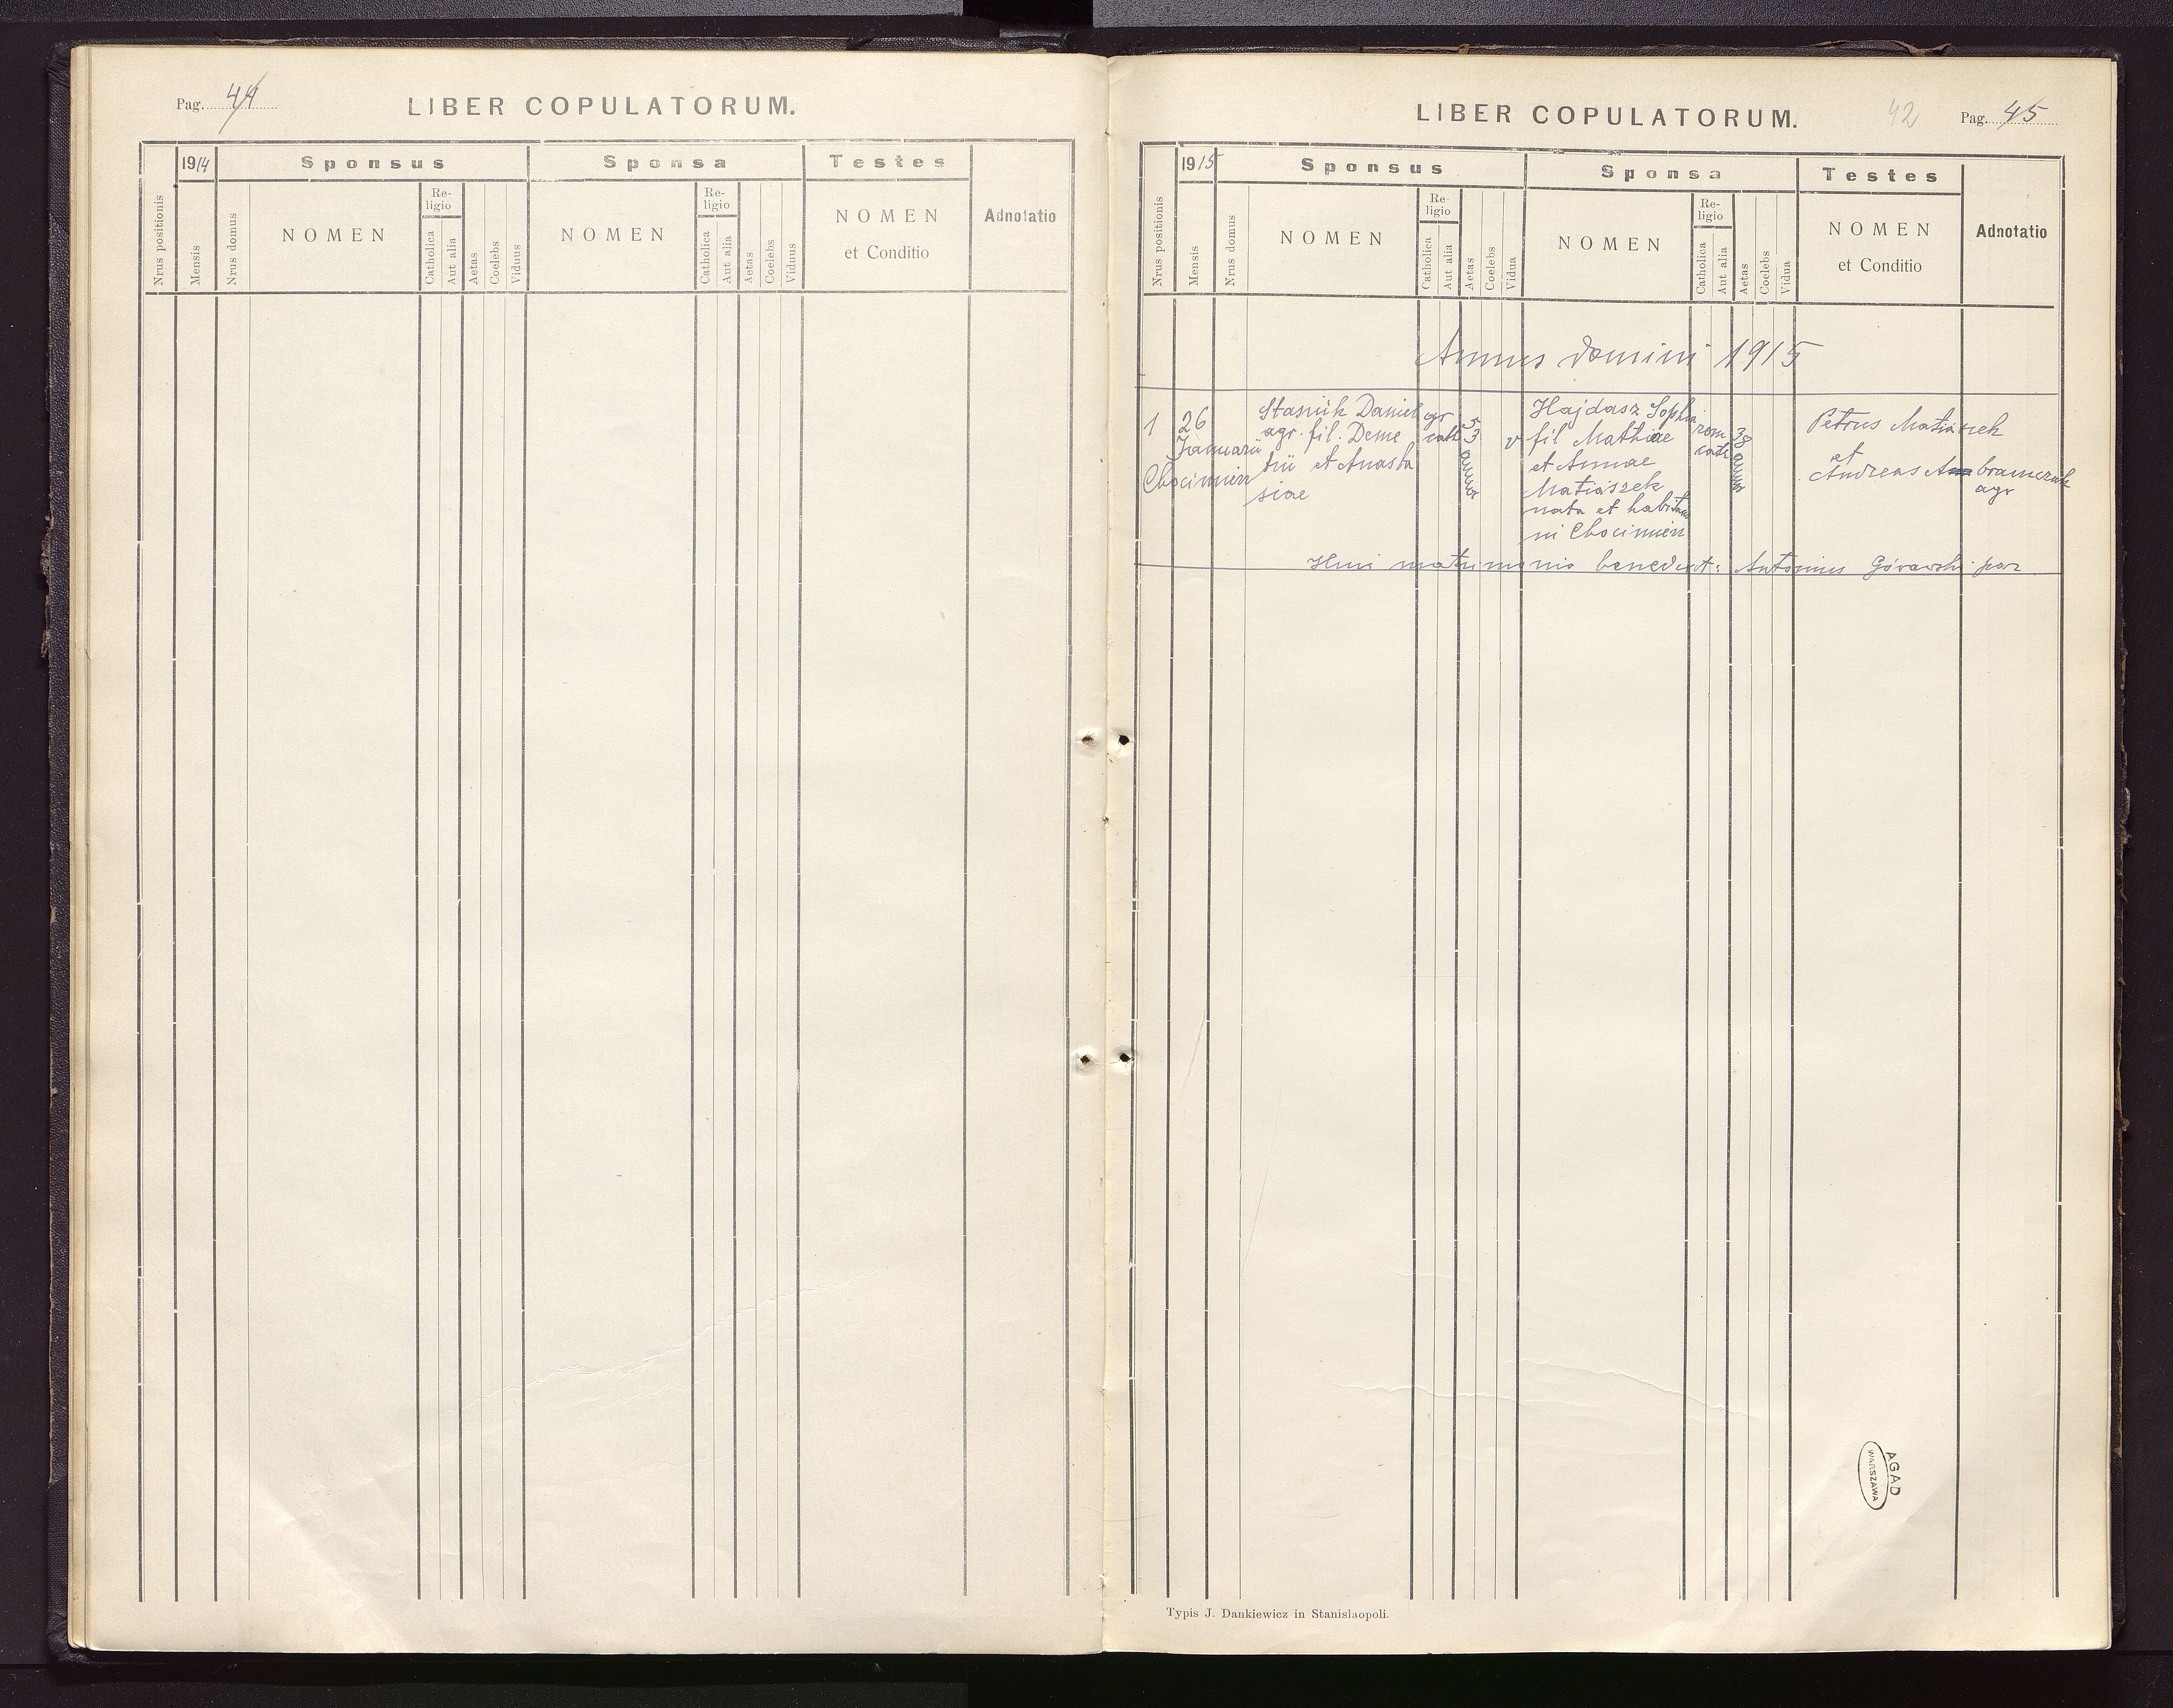 Pag. 44
LIBER COPULATORUM.
Nrus positionis
1914
Mensis
Sponsus
Nrus domus
NOMEN
Re-
ligio
Catholica
Aut alia
Aetas
Coelebs
Viduus
Sponsa
NOMEN
Re-
ligio
Catholica
Aut alia
Aetas
Coelebs
Viduus
Testes
NOMEN
et Conditio
Adnotatio
LIBER COPULATORUM.
42
Pag. 45
Nrus positionis
1915
Mensis
Sponsus
Nrus domus
NOMEN
Re-
ligio
Catholica
Aut alia
Aetas
Coelebs
Vidua
Sponsa
NOMEN
Re-
ligio
Catholica
Aut alia
Aetas
Coelebs
Vidua
Testes
NOMEN
et Conditio
Adnotatio
Annus domini 1915
1
26
Januarii
Chocimierz
Stasiuk Daniel
agr. fil. Deme
trii et Anasta
siae
gr
cath
53
annor
v
Hajdasz Sophia
fil Mathiae
et Annae
Matiaszek
nata et habitans
in Chocimierz
rom
cath
38
annor
Petrus Matiaszek
et
Andreas Abramczuk
agr
Huic matrimonio benedixit: Antonius Górawski par
AGAD
WARSZAWA
Typis J. Dankiewicz in Stanislaopoli.